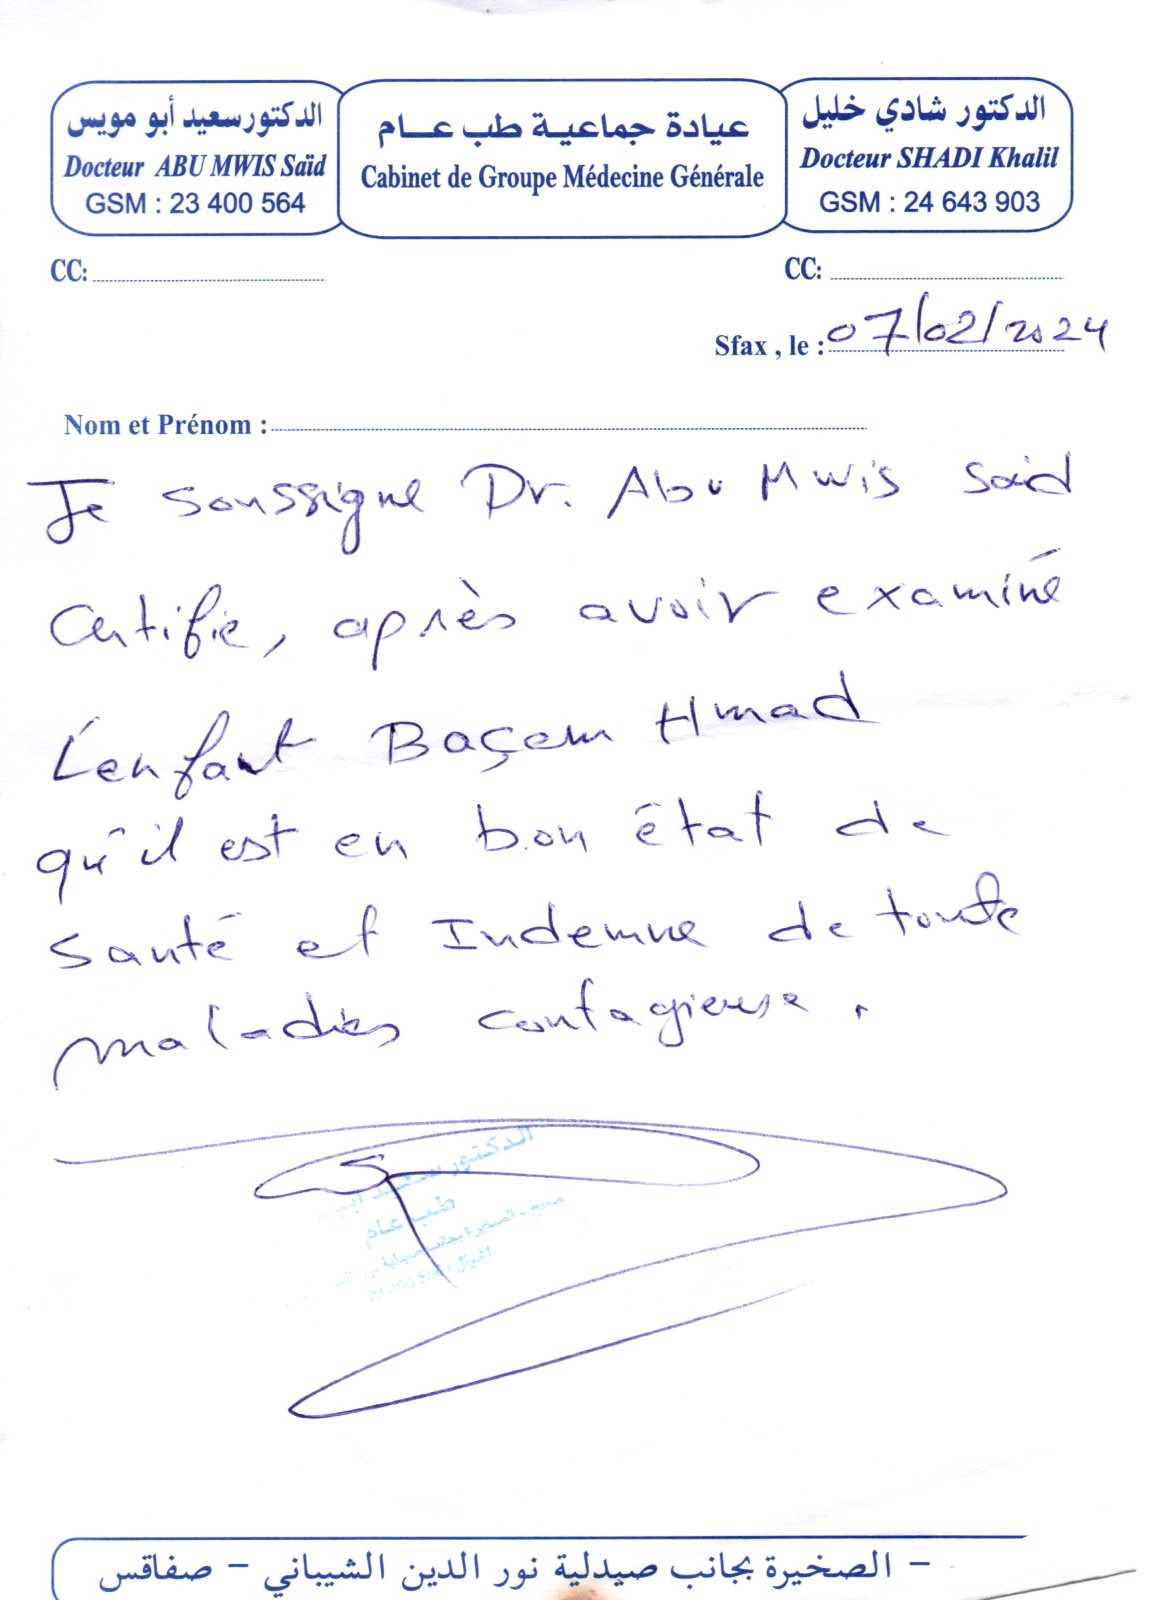 الدكتور سعيد أبو مويس
Docteur ABU MWIS Saïd
GSM : 23 400 564
عيادة جماعية طب عام
Cabinet de Groupe Médecine Générale
الدكتور شادي خليل
Docteur SHADI Khalil
GSM : 24 643 903
CC:
CC:
Sfax , le : 07/02/2024
Nom et Prénom :
Je soussigne Dr. Abu Mwis Said
Certifie, après avoir examiné
L'enfant Baçem Hmad
qu'il est en bon état de
santé et Indemne de toute
maladies contagieuse.
الدكتور سعيد أبو
طب عام
الصخيرة بجانب صيدلية نور
الجوال
– الصخيرة بجانب صيدلية نور الدين الشيباني – صفاقس